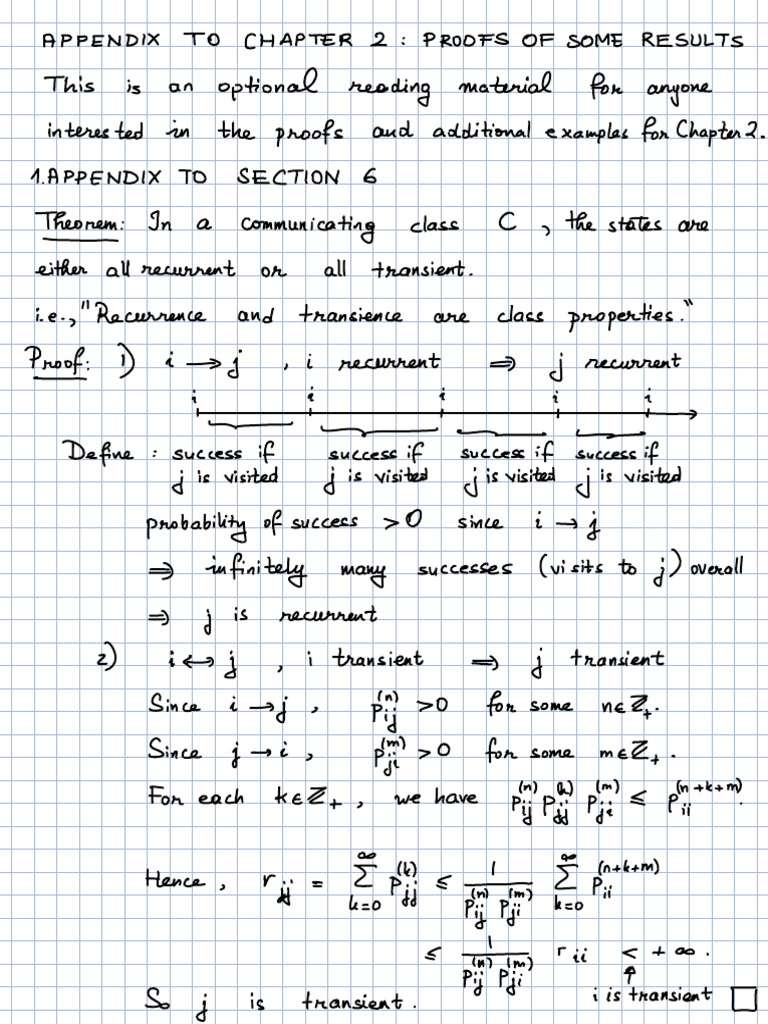 APPENDIX TO CHAPTER 2 : PROOFS OF SOME RESULTS
This is an optional reading material for anyone
interested in the proofs and additional examples for Chapter 2.
1. APPENDIX TO SECTION 6
Theorem: In a communicating class C , the states are
either all recurrent or all transient.
i.e., "Recurrence and transience are class properties."
Proof: 1) i → j , i recurrent ⇒ j recurrent
i i i i i
Define : success if success if success if success if
j is visited j is visited j is visited j is visited
probability of success > 0 since i → j
⇒ infinitely many successes (visits to j) overall
⇒ j is recurrent
2) i ↔ j , i transient ⇒ j transient
Since i → j , p_{ij}^{(n)} > 0 for some n ∈ ℤ₊.
Since j → i , p_{ji}^{(m)} > 0 for some m ∈ ℤ₊.
For each k ∈ ℤ₊ , we have p_{ij}^{(n)} p_{jj}^{(k)} p_{ji}^{(m)} ≤ p_{ii}^{(n+k+m)}.
Hence, r_{jj} = ∑_{k=0}^{∞} p_{jj}^{(k)} ≤ \frac{1}{p_{ij}^{(n)} p_{ji}^{(m)}} ∑_{k=0}^{∞} p_{ii}^{(n+k+m)}
≤ \frac{1}{p_{ij}^{(n)} p_{ji}^{(m)}} r_{ii} < +∞.
↑
So j is transient. i is transient □